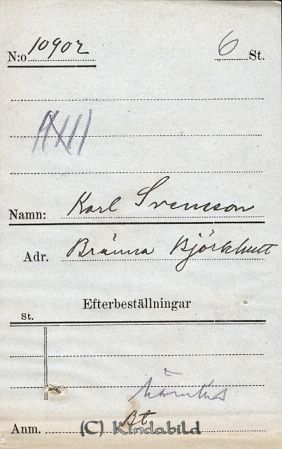 N:o 10902 6 St.
Namn: Karl Svensson
Adr. Bränna Björkhult
Efterbeställningar
St.
Anm. Bt
(C) Kindabild